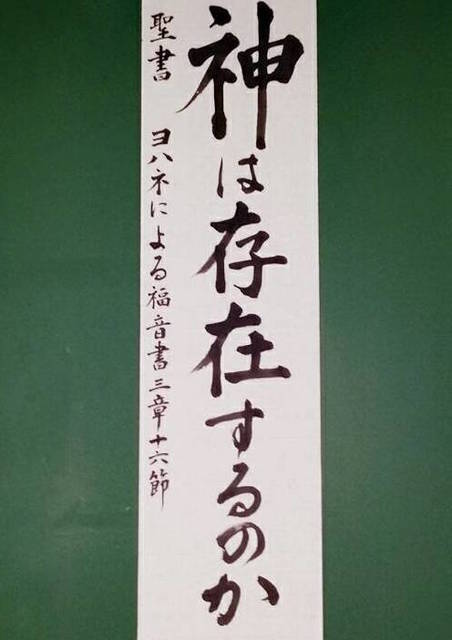 神は存在するのか
聖書 ヨハネによる福音書三章十六節